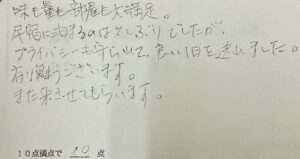 味も量も部屋も大満足。
民宿に泊まるのは久しぶりでしたが、
プライバシーも守られて、良い1日を過しました。
有り難うございます。
また来させてもらいます。
10点満点で 10 点